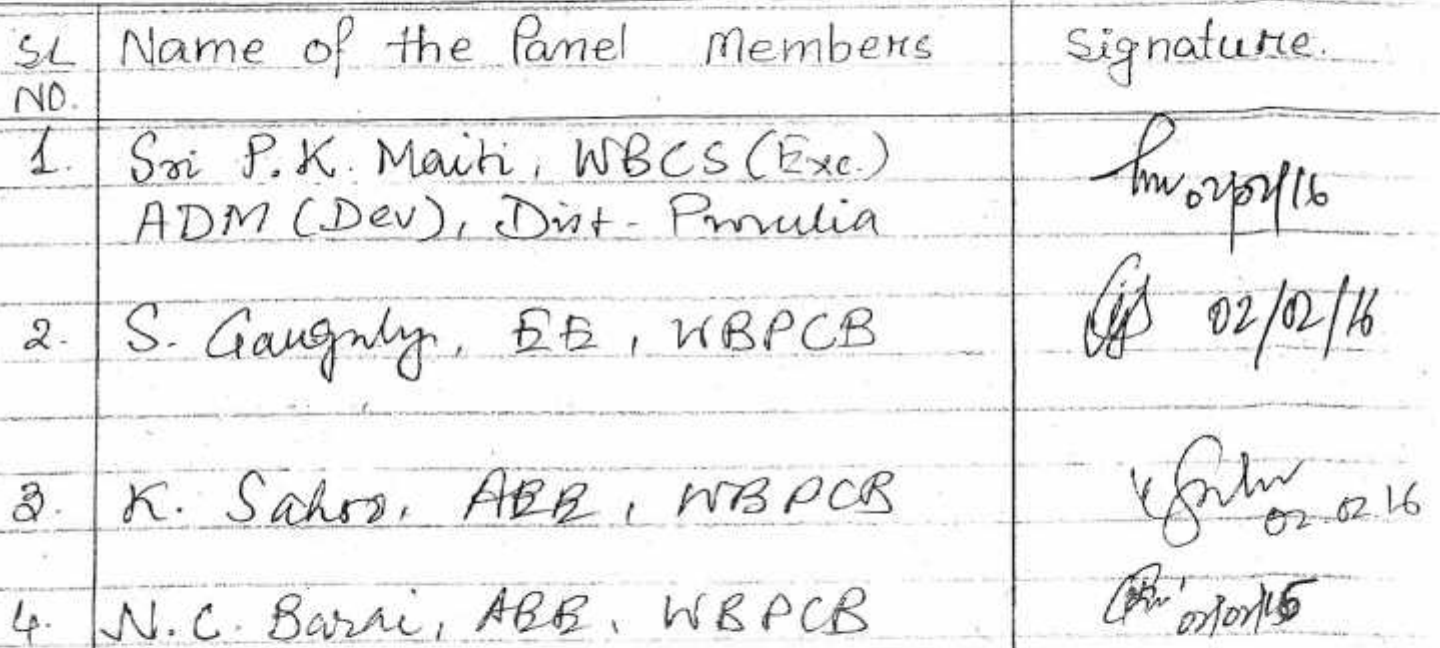 SL NO. Name of the Panel Members Signature.
1. Sri P.K. Maiti, WBCS (Exc.)
ADM (Dev), Dist - Purulia 02/02/16
2. S. Ganguly, EE, WBPCB 02/02/16
3. K. Sahoo, AEE, WBPCB 02.02.16
4. N.C. Barai, AEE, WBPCB